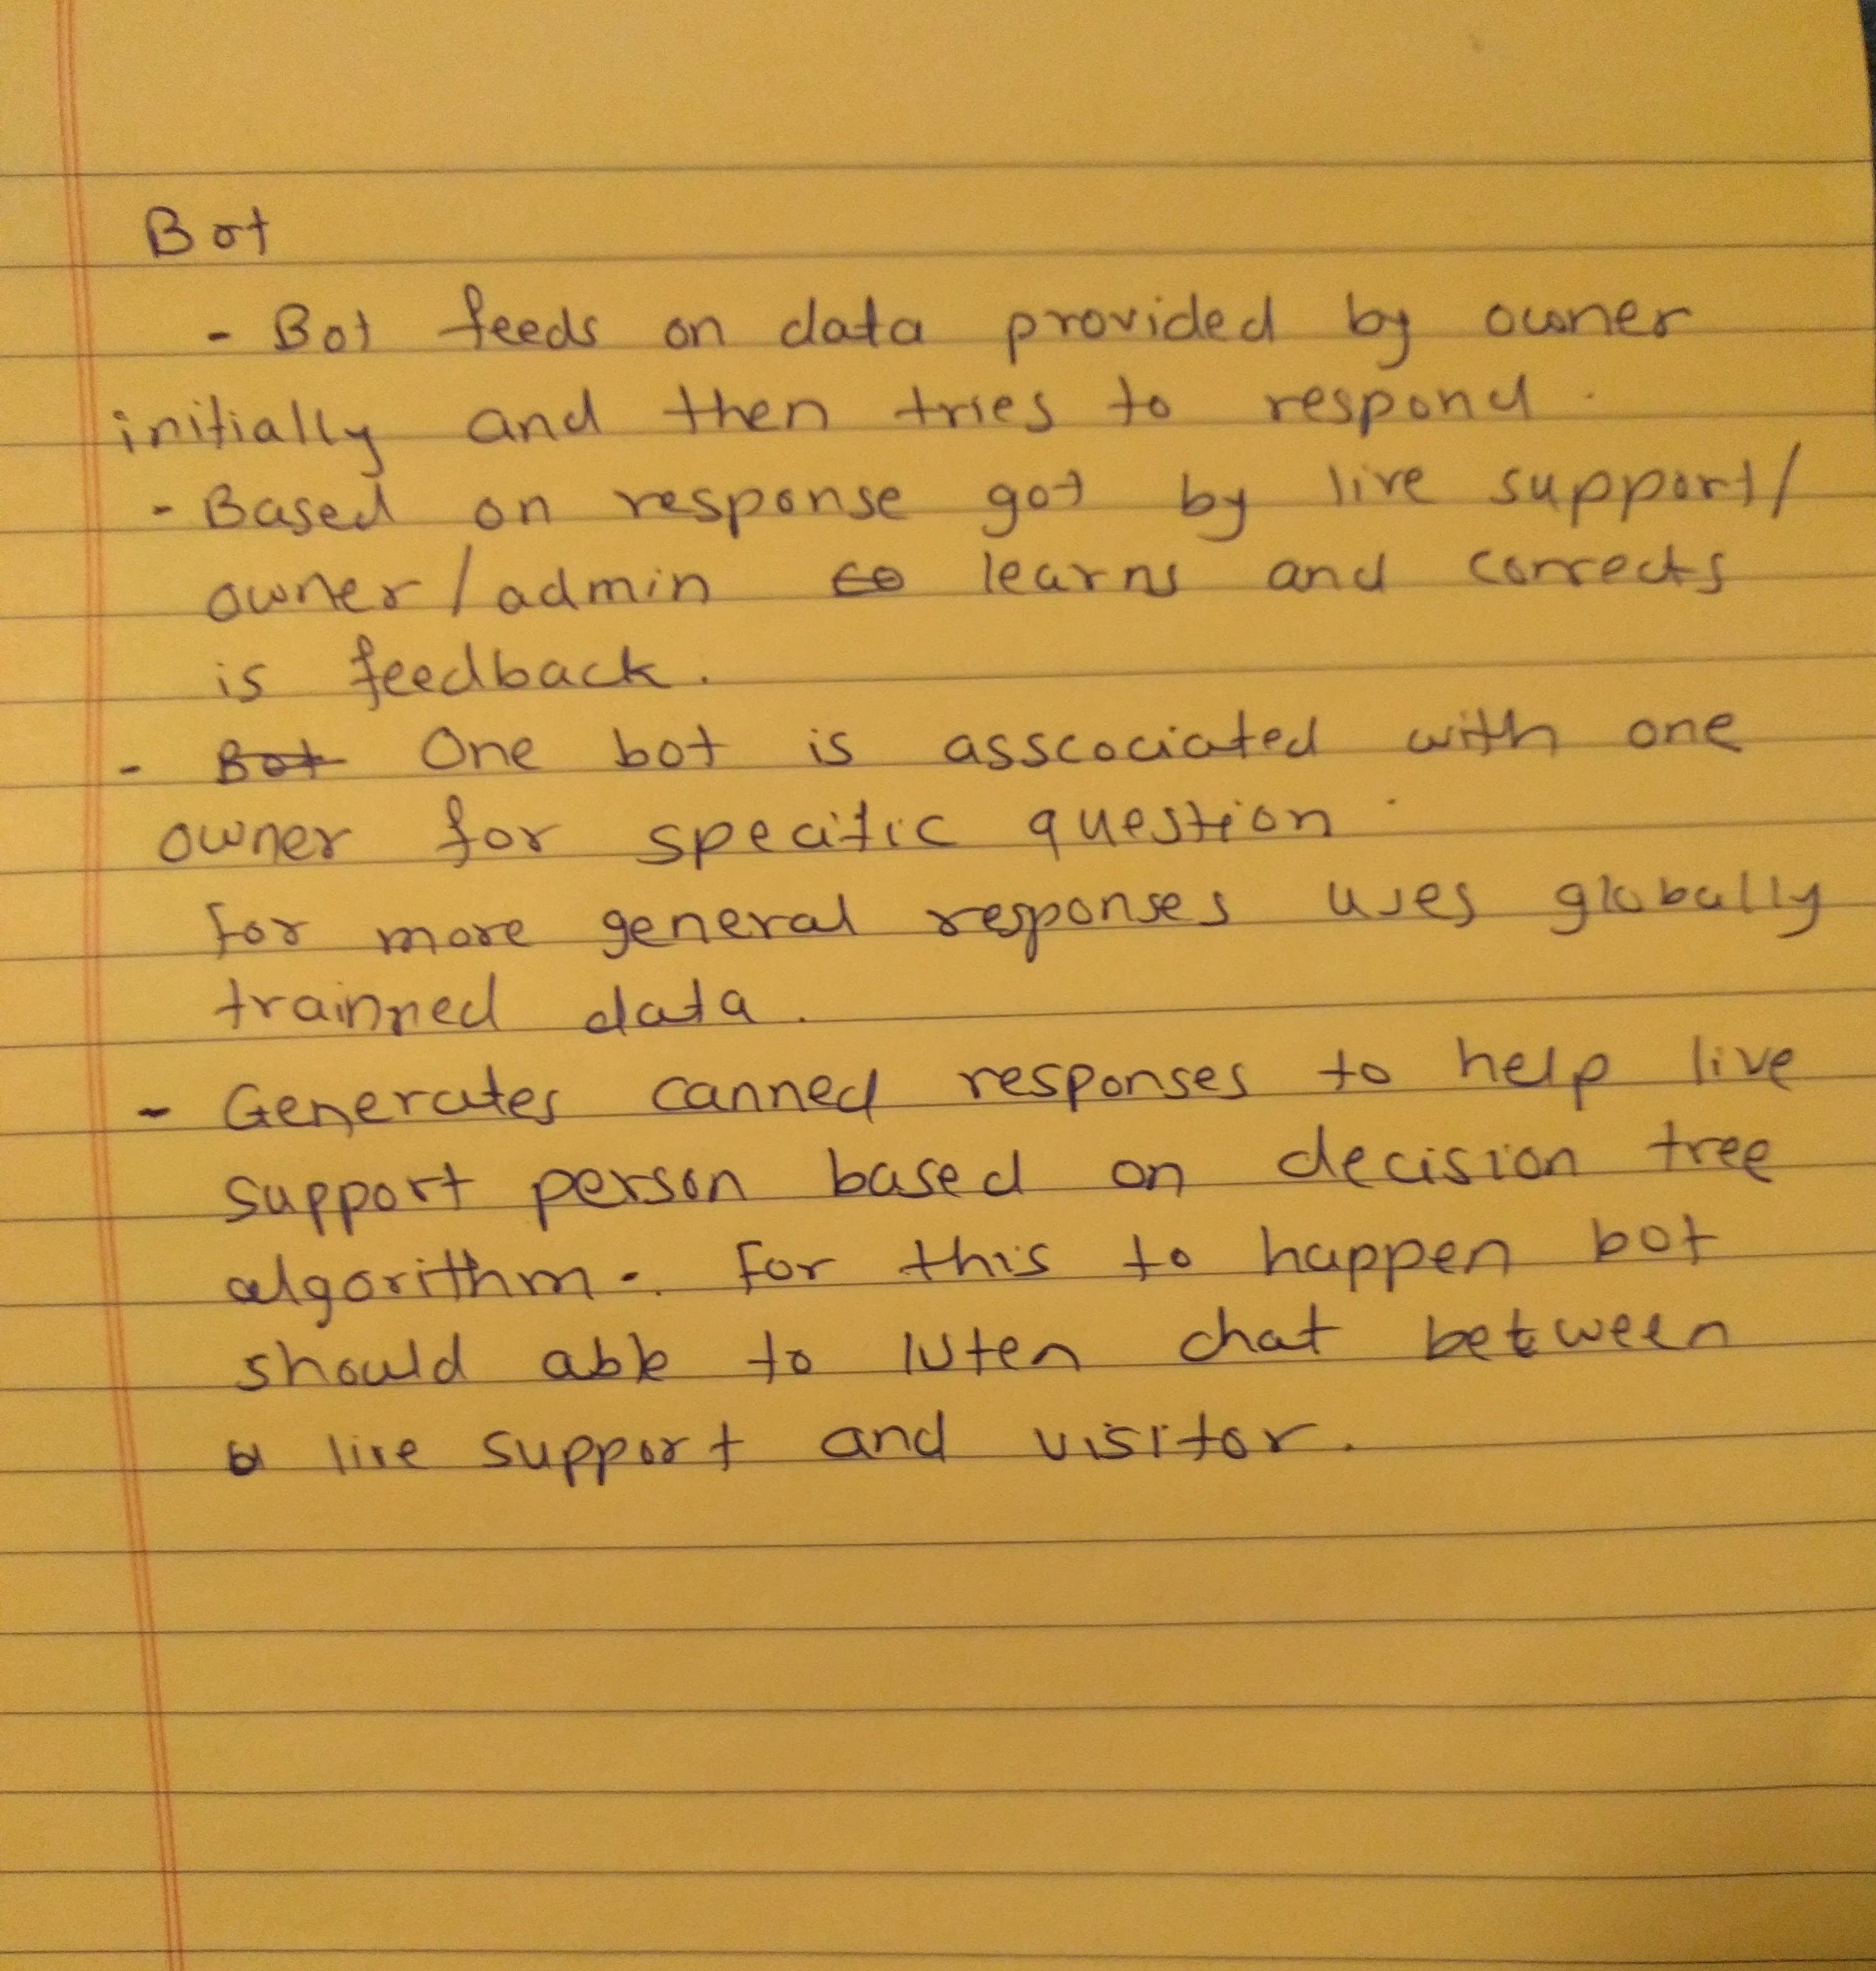 Bot
- Bot feeds on data provided by owner
initially and then tries to respond.
- Based on response got by live support/
owner/admin learns and corrects
is feedback.
- Bot One bot is asscociated with one
owner for specific question.
For more general responses uses globally
trainned data.
- Generates canned responses to help live
support person based on decision tree
algorithm. For this to happen bot
should able to listen chat between
live support and visitor.